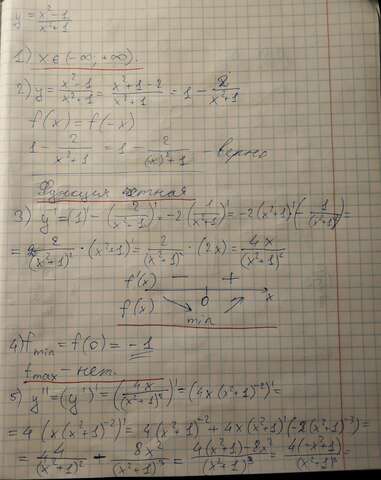 y = x²-1/x²+1
1) x∈(-∞; +∞).
2) y = x²-1/x²+1 = x²+1-2/x²+1 = 1 - 2/x²+1
f(x) = f(-x)
1 - 2/x²+1 = 1 - 2/(x)²+1 - верно
Функция четная
3) y' = (1)' - (2/x²+1)' = -2(1/x²+1)' = -2(x²+1)'(-1/(x²+1)²) =
= 2/(x²+1)² · (x²+1)' = 2/(x²+1)² · (2x) = 4x/(x²+1)²
f'(x) - +
f(x) 0 x
min
4) f min = f(0) = -1
f max - нет.
5) y'' = (y')' = (4x/(x²+1)²)' = (4x(x²+1)⁻²)' =
= 4(x(x²+1)⁻²)' = 4(x²+1)⁻² + 4x(x²+1)'(-2(x²+1)⁻³) =
= 4/(x²+1)² + 8x²/(x²+1)³ = 4(x²+1)-8x²/(x²+1)³ = 4(-x²+1)/(x²+1)³ =